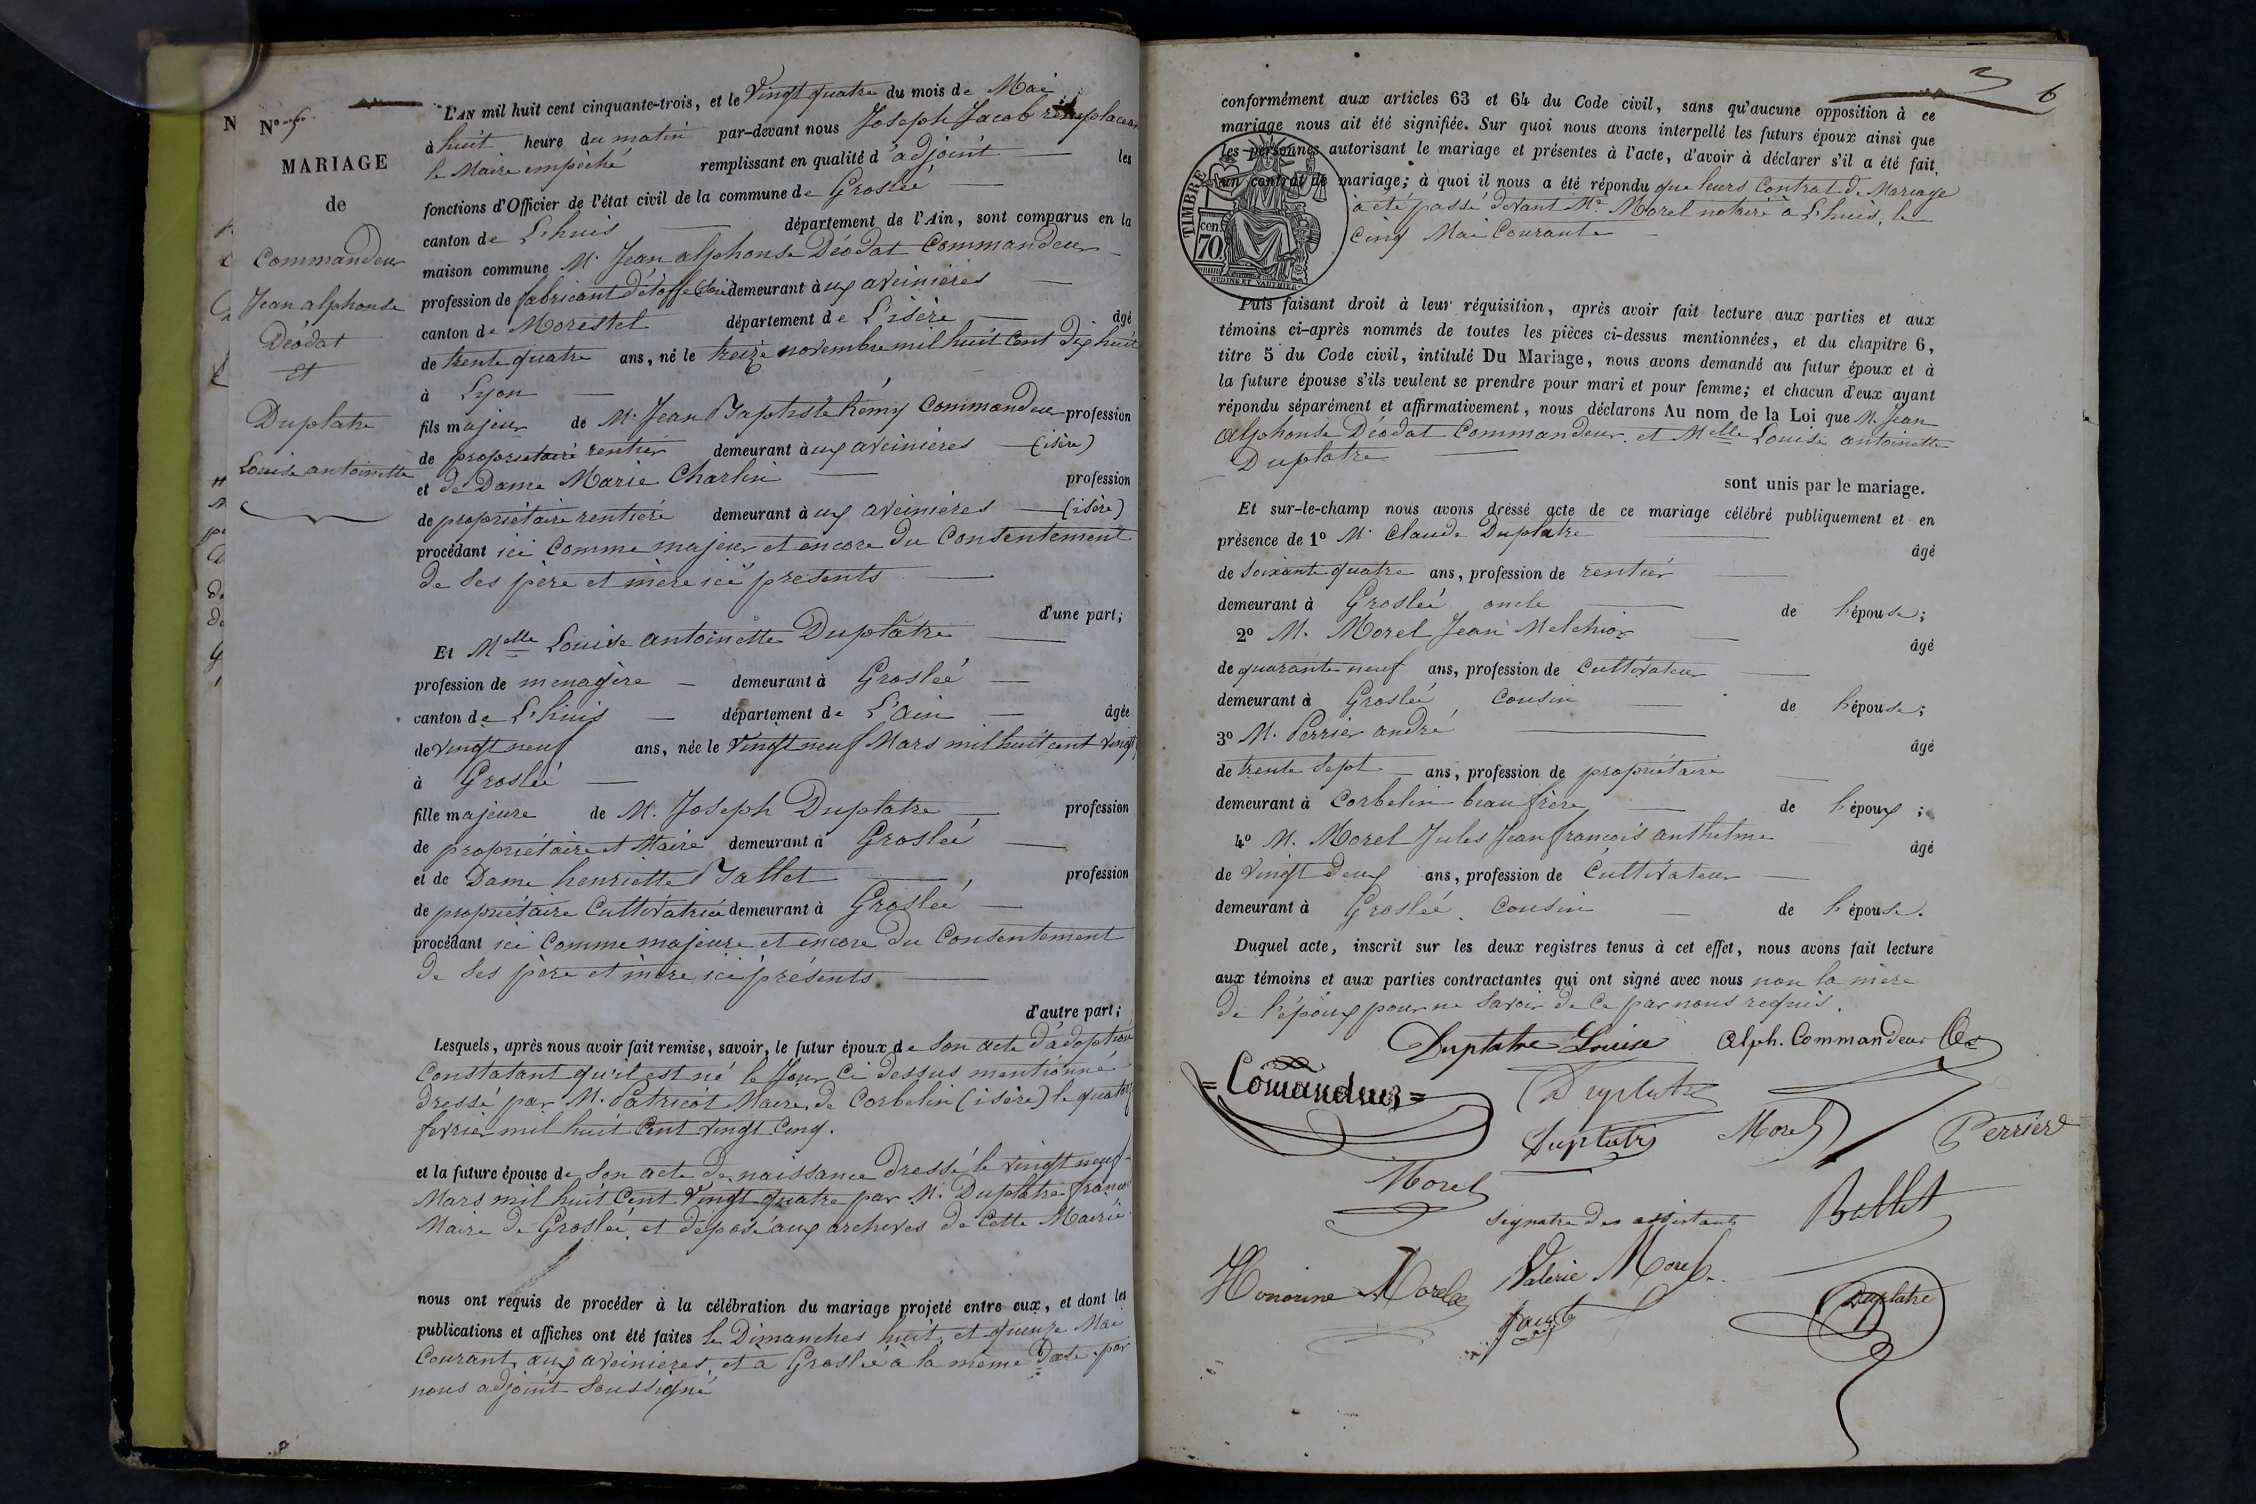 N
No 7.
MARIAGE
de
Commandeur
Jean alphonse
Déodat
et
Duplatre
Louise antoinette
L'AN mil huit cent cinquante-trois, et le Vingt quatre du mois de Mai
à huit heure du matin par-devant nous Joseph Jacob remplacant
le Maire empêché remplissant en qualité d'adjoint les
fonctions d'Officier de l'état civil de la commune de Groslée
canton de L'huis département de l'Ain, sont comparus en la
maison commune M. Jean alphonse Déodat Commandeur
profession de fabricant d'étoffe demeurant à ux aveinières
canton de Morestel département de L'isère âgé
de trente quatre ans, né le treize novembre mil huit Cent dix huit
à Lyon
fils majeur de M. Jean Baptiste Rémy Commandeur profession
de propriétaire rentier demeurant à ux aveinières (isère)
et de Dame Marie Charlin profession
de propriétaire rentière demeurant à ux aveinières (isère)
procédant ici Comme majeur et encore du Consentement
de ses père et mère ici présents
d'une part;
Et Melle Louise antoinette Duplâtre
profession de menagère demeurant à Groslée
canton de L'huis département de L'Ain âgée
de Vingt neuf ans, née le Vingt neuf Mars mil huit cent Vingt
à Groslée
fille majeure de M. Joseph Duplatre profession
de propriétaire et Maire demeurant à Groslée
et de Dame henriette Ballet profession
de propriétaire Cultivatrice demeurant à Groslée
procédant ici Comme majeure et encore du Consentement
de ses père et mère ici présents
d'autre part;
Lesquels, après nous avoir fait remise, savoir, le futur époux de Son acte d'adoption
Constatant qu'il est né le Jour Ci dessus mentionné
dressé par M. Patricot Maire de Corbelin (isère) le quatre
fevrier mil huit Cent vingt Cinq.
et la future épouse de Son acte de naissance dressé le vingt neuf
Mars mil huit Cent Vingt quatre par M. Duplâtre francois
Maire de Groslée, et déposé aux archives de Cette Mairie
nous ont requis de procéder à la célébration du mariage projeté entre eux, et dont les
publications et affiches ont été faites le Dimanches huit et quinze Mai
Courant, aux aveinières, et à Groslée à la même Date par
nous adjoint Soussigné
6
conformément aux articles 63 et 64 du Code civil, sans qu'aucune opposition à ce
mariage nous ait été signifiée. Sur quoi nous avons interpellé les futurs époux ainsi que
les personnes autorisant le mariage et présentes à l'acte, d'avoir à déclarer s'il a été fait
un contrat de mariage; à quoi il nous a été répondu que leurs Contrat de Mariage
à été passé devant Me Morel notaire à L'huis, le
Cinq Mai Courant
TIMBRE
cen.
70
Puis faisant droit à leur réquisition, après avoir fait lecture aux parties et aux
témoins ci-après nommés de toutes les pièces ci-dessus mentionnées, et du chapitre 6,
titre 5 du Code civil, intitulé Du Mariage, nous avons demandé au futur époux et à
la future épouse s'ils veulent se prendre pour mari et pour femme; et chacun d'eux ayant
répondu séparément et affirmativement, nous déclarons Au nom de la Loi que M. Jean
Alphonse Déodat Commandeur et Melle Louise antoinette
Duplatre
sont unis par le mariage.
Et sur-le-champ nous avons dressé acte de ce mariage célébré publiquement et en
présence de 1o M. Claude Duplatre âgé
de soixante quatre ans, profession de rentier
demeurant à Groslée oncle de l'épouse;
2o M. Morel Jean Melchior âgé
de quarante neuf ans, profession de Cultivateur
demeurant à Groslée Cousin de l'épouse;
3o M. Perrier andré âgé
de trente Sept ans, profession de propriétaire
demeurant à Corbelin beau frère de l'époux;
4o M. Morel Jules Jean francois anthelme âgé
de Vingt Deux ans, profession de Cultivateur
demeurant à Groslée Cousin de l'épouse.
Duquel acte, inscrit sur les deux registres tenus à cet effet, nous avons fait lecture
aux témoins et aux parties contractantes qui ont signé avec nous non la mère
de l'époux pour ne Savoir de Ce par nous requis.
Duplatre Louise Alph. Commandeur
Comandeur Duplatre
Duplatre Morel Perrier
Morel
Signatre des assistants Ballet
Honorine Morel Valérie Morel
Jacob Duplatre